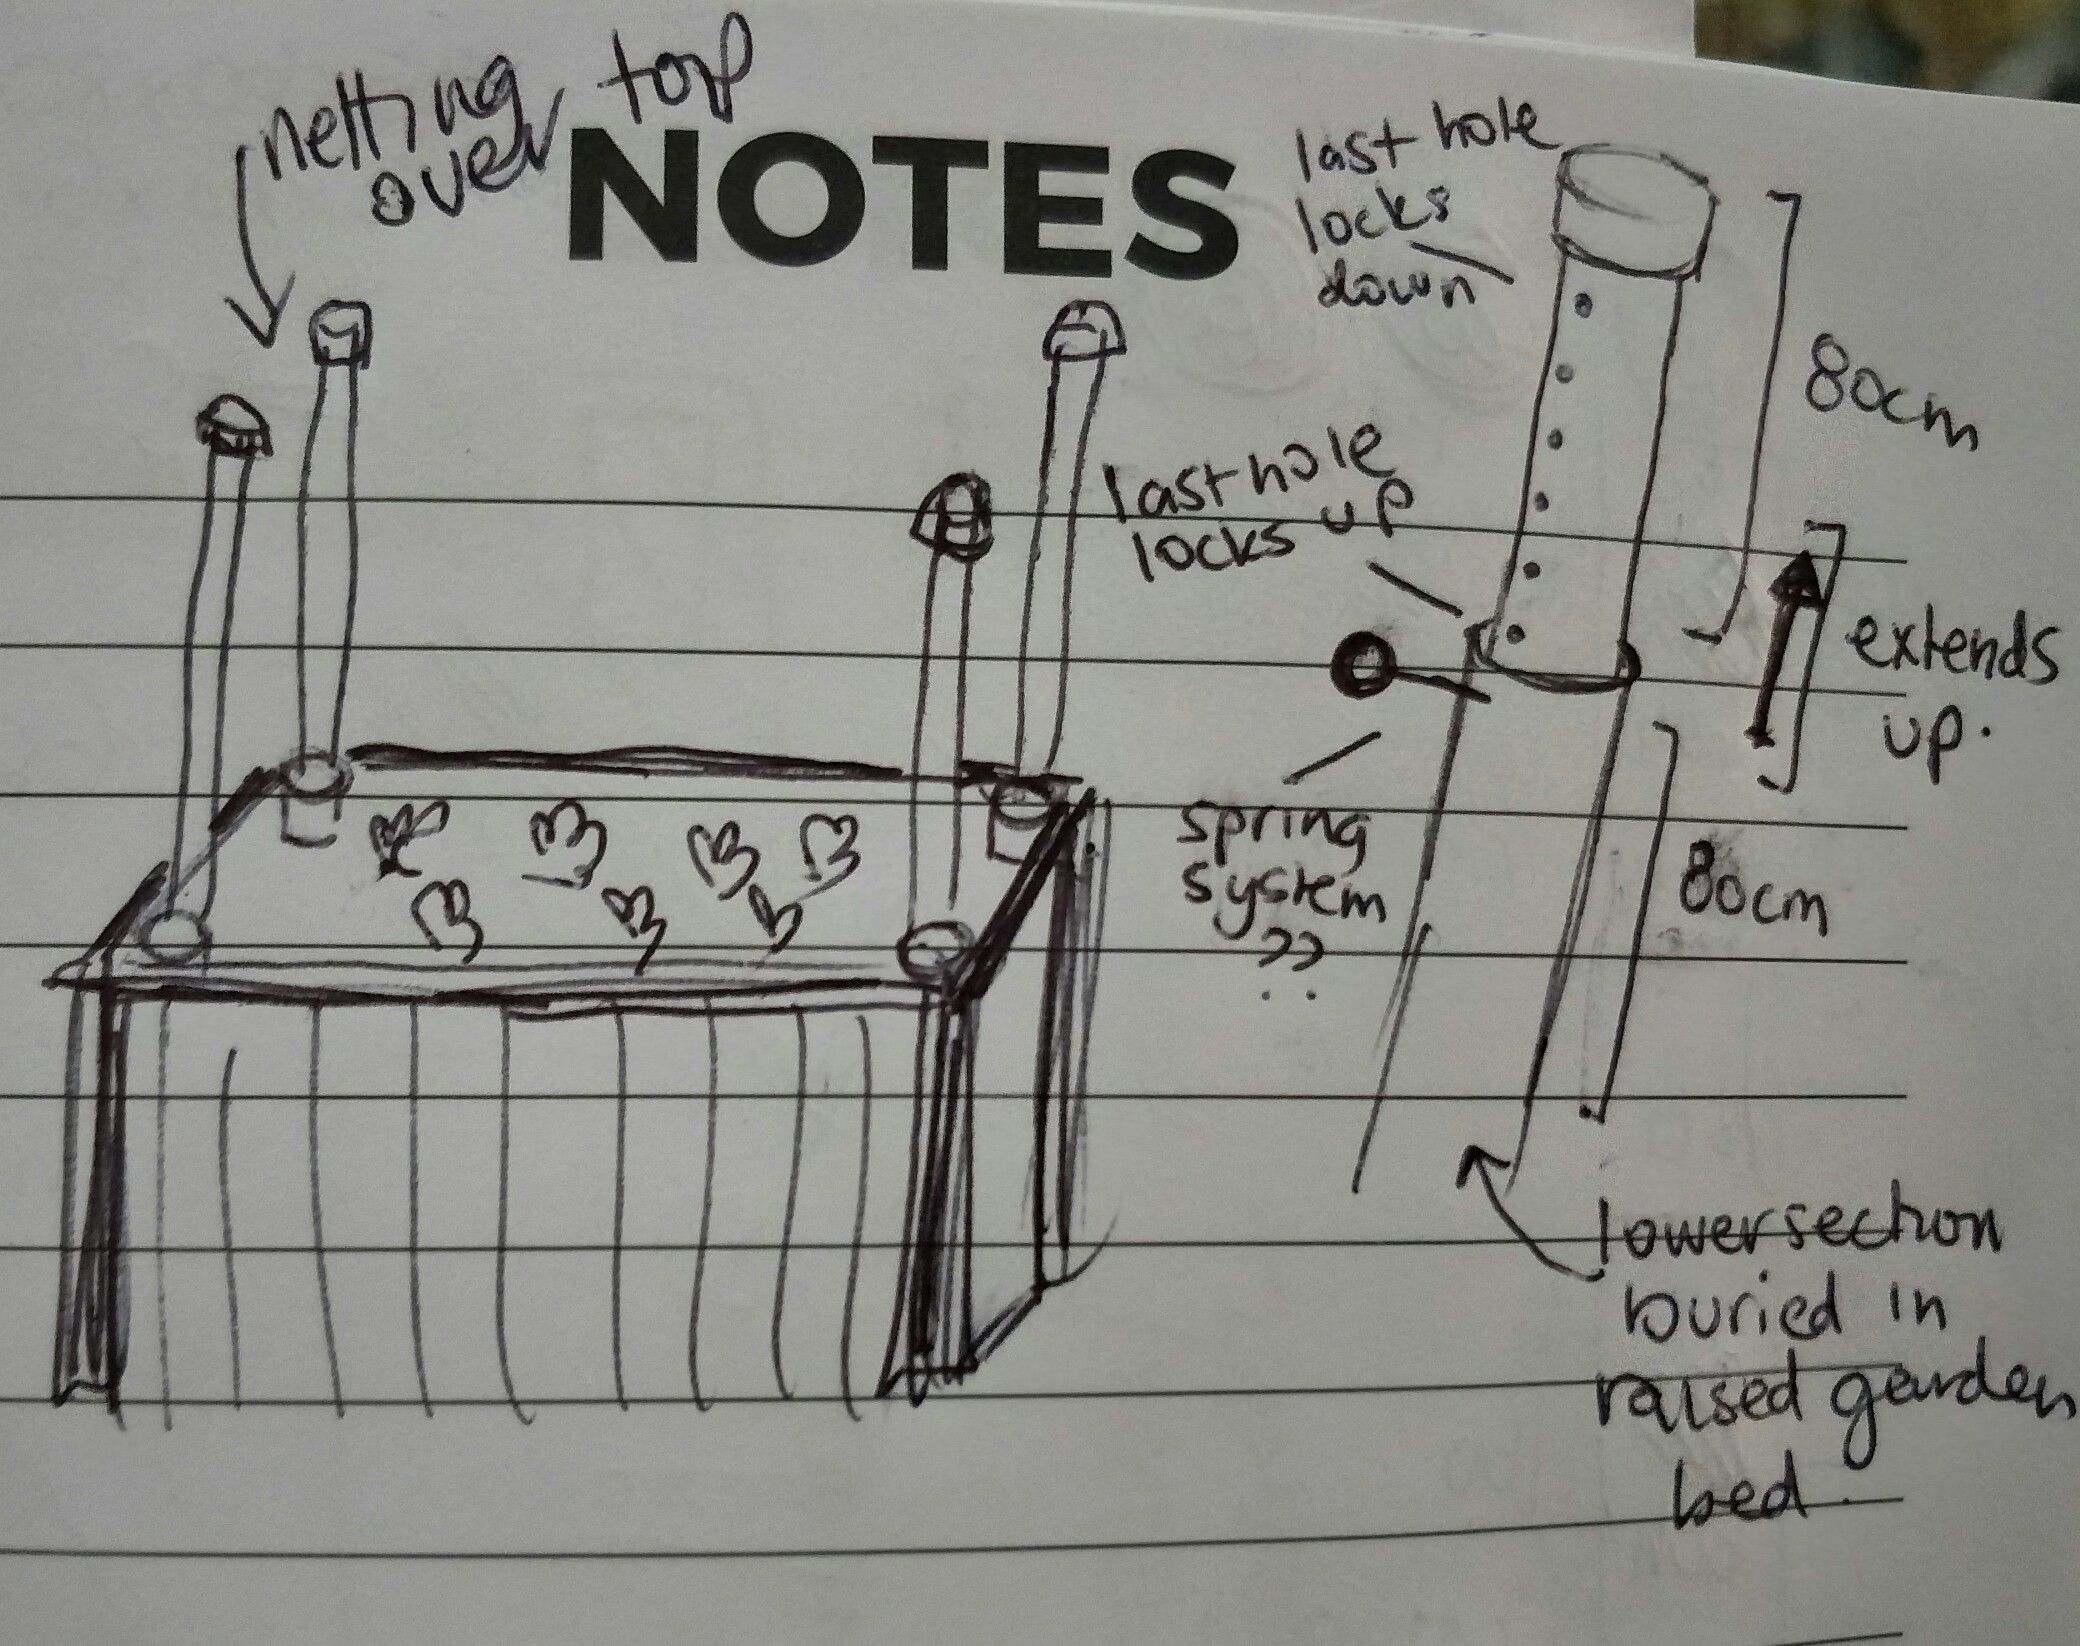 netting
over top
NOTES
last hole
locks
down
80cm
last hole
locks up
extends
up.
spring
system
??
80cm
lowersection
buried in
raised garden
bed.